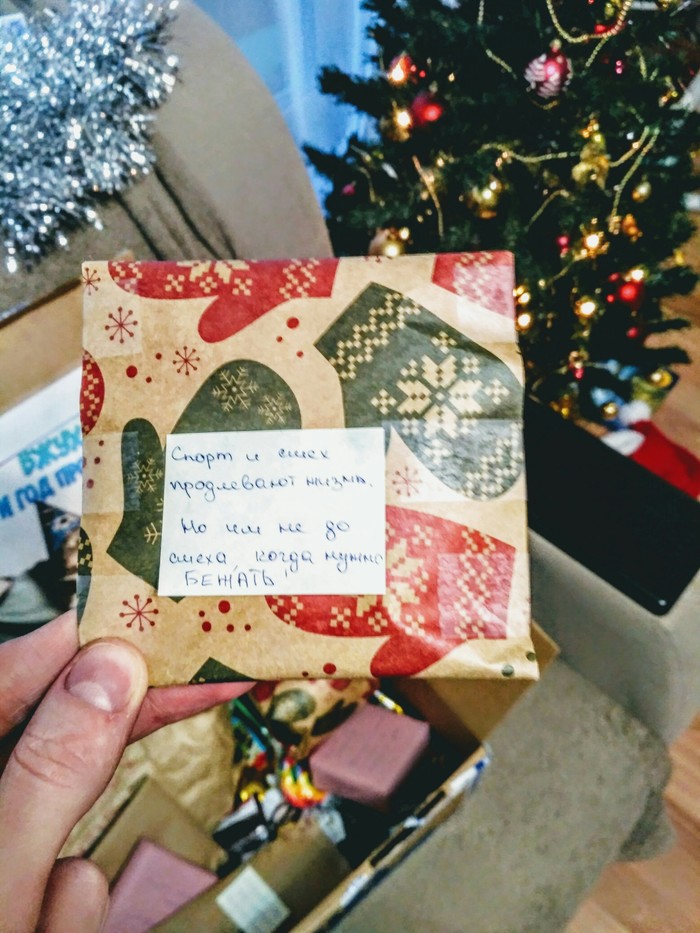 ВЖУХ
И ГОД ПРО
Спорт и смех
продлевают жизнь.
Но им не до
смеха, когда нужно
БЕЖАТЬ!